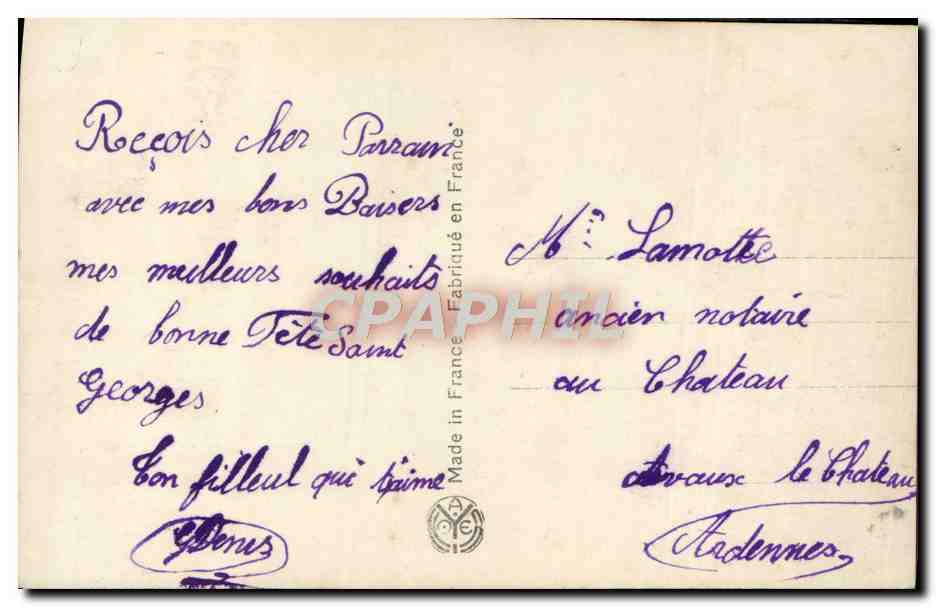 Reççois cher Parrain
avec mes bons Baisers
mes meilleurs souhaits
de bonne Fête Saint
Georges
Ton filleul qui t'aime
GDenis
Made in France - Fabriqué en France
CPAPHIL
Mr Lamotte
ancien notaire
au Chateau
Avaux le Chateau
Ardennes